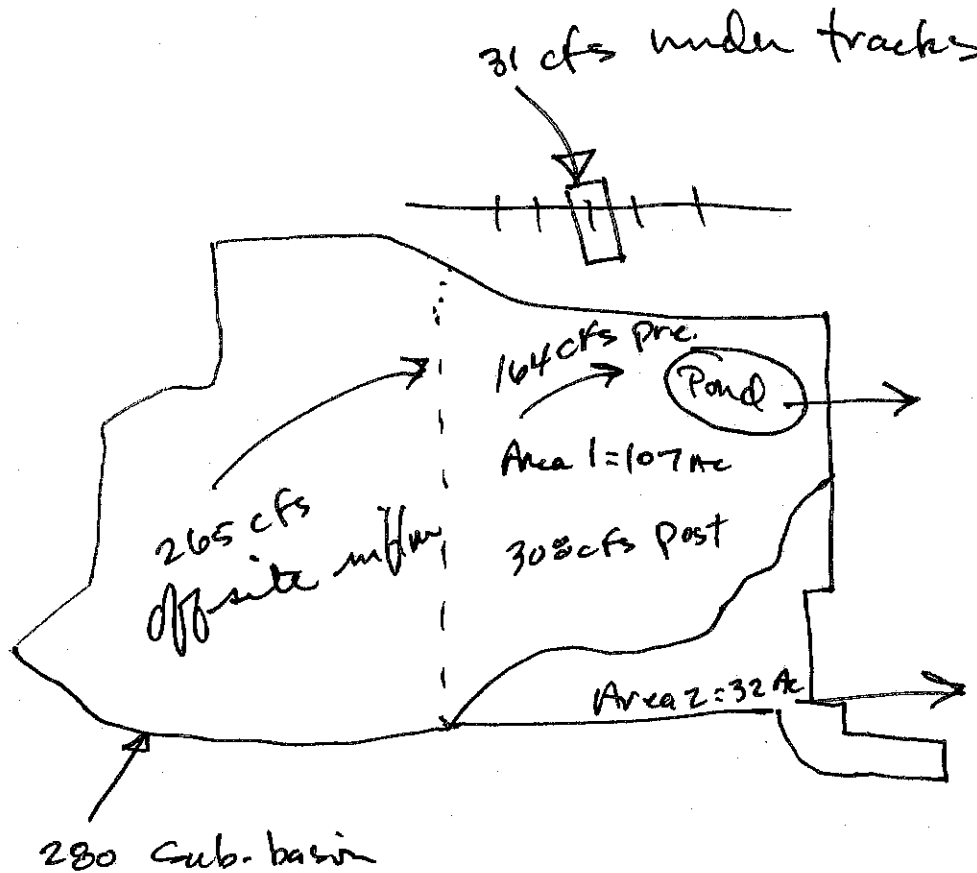 31 cfs under tracks
164 cfs pre.
Pond
Area 1=107 Ac
265 cfs
offsite inflow
308cfs post
Area 2=32 Ac
280 Sub-basin